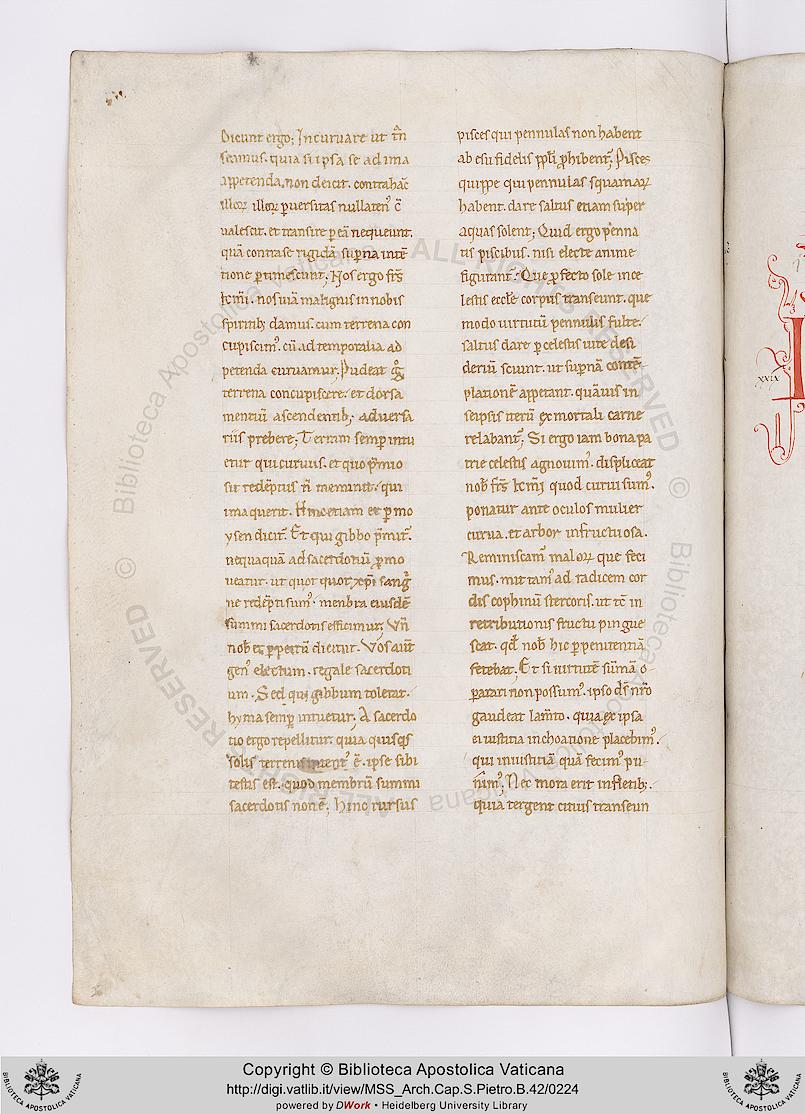 Dicunt ergo; Incuruare ut tͣn
seamus. quia si ipsa se ad ima
appetenda, non deicit. contra hāc
illoꝝ illoꝝ puersitas nullatenꝰ c̄
ualescit. et transire p eā nequeunt.
quā contra se rigidā supna intē
tione ptimescunt; Nos ergo fr̄s
kr̄mi. nos uiā malignis in nobis
spiritib; damus. cum terrena con
cupiscimꝰ. cū ad temporalia ap
petenda curuamur; Pudeat g̊
terrena concupiscere. et dorsa
mentiū ascendentib; aduersa
riis prebere; Terram semp intu
etur qui curuus. et quo p̄mio
sit redēptus n̄ meminit. qui
ima querit. Hinc etiam et p mo
ysen dicit᷑. Et qui gibbo p̄mit᷑.
nequaquā ad sacerdotiū pmo
ueatur. ut quot quot xp̄i sang̊
ne redēpti sumꝰ. menbra eiusdē
summi sacerdotis efficimur; Vn̄
nob̄ et p petrū dicitur. Vos aut̄
genꝰ electum. regale sacerdoti
um. Sed qui gibbum tolerat.
hyma semp intuetur. A sacerdo
tio ergo repellitur. quia quisqs
solis terrenis intentꝰ ē. ipse sibi
testis est. quod membrū summi
sacerdotis non ē; Hinc rursus
pisces qui pennulas non habent
ab esu fidelis ppli phibent᷑; Pisces
quippe qui pennulas squamaꝝ
habent. dare saltus etiam super
aquas solent; Quid ergo penna
tis piscibus. nisi electe anime
figurant᷑; Que pfecto sole in ce
lestis eccl̄e corpus transeunt. que
modo uirtutū pennulis fulte.
saltus dare p celestis uite desi
deriū sciunt. ut supnā contē
plationē appetant. quāuis in
seipsis iterū ex mortali carne
relabant᷑; Si ergo iam bona pa
trie celestis agnouimꝰ. displiceat
nob̄ fr̄s kr̄mi quod curui sumꝰ.
ponatur ante oculos mulier
curua. et arbor infructuosa.
Reminiscamꝰ maloꝝ que feci
mus. mittamꝰ ad radicem cor
dis cophinū stercoris. ut tc̄ in
retributionis fructu pingue
scat. qd̄ nob̄ hic p penitentiā
fetebat; Et si uirtutē sūmā o
parari non possumꝰ. ipso ds̄ nr̄o
gaudeat lam̄to. quia ex ipsa
ei iustitia inchoatione placebimꝰ.
qui iniustitiā quā fecimꝰ pu
nimꝰ; Nec mora erit in fletib;.
quia tergent citius transeun
XXIX
Copyright © Biblioteca Apostolica Vaticana
http://digi.vatlib.it/view/MSS_Arch.Cap.S.Pietro.B.42/0224
powered by DWork • Heidelberg University Library